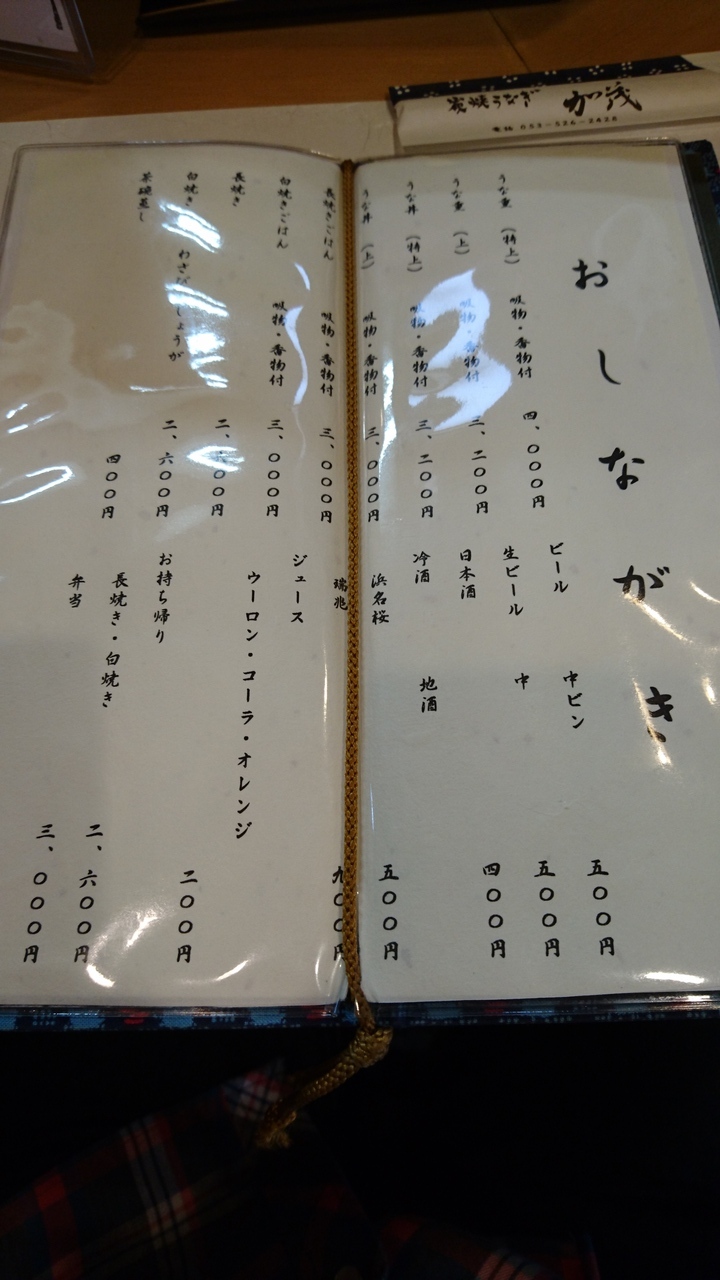 炭焼うなぎ 加茂
電話 053-526-2428
おしながき
うな重 (特上) 吸物・香物付 四、〇〇〇円
うな重 (上) 吸物・香物付 三、二〇〇円
うな丼 (特上) 吸物・香物付 三、二〇〇円
うな丼 (上) 吸物・香物付 三、〇〇〇円
長焼きごはん 吸物・香物付 三、〇〇〇円
白焼きごはん 吸物・香物付 三、〇〇〇円
長焼き 二、六〇〇円
白焼き わさび しょうが 二、六〇〇円
茶碗蒸し 四〇〇円
ビール 中ビン 五〇〇円
生ビール 中 五〇〇円
日本酒 四〇〇円
冷酒 地酒
浜名桜 五〇〇円
瑞兆 九〇〇円
ジュース
ウーロン・コーラ・オレンジ 二〇〇円
お持ち帰り
長焼き・白焼き 二、六〇〇円
弁当 三、〇〇〇円